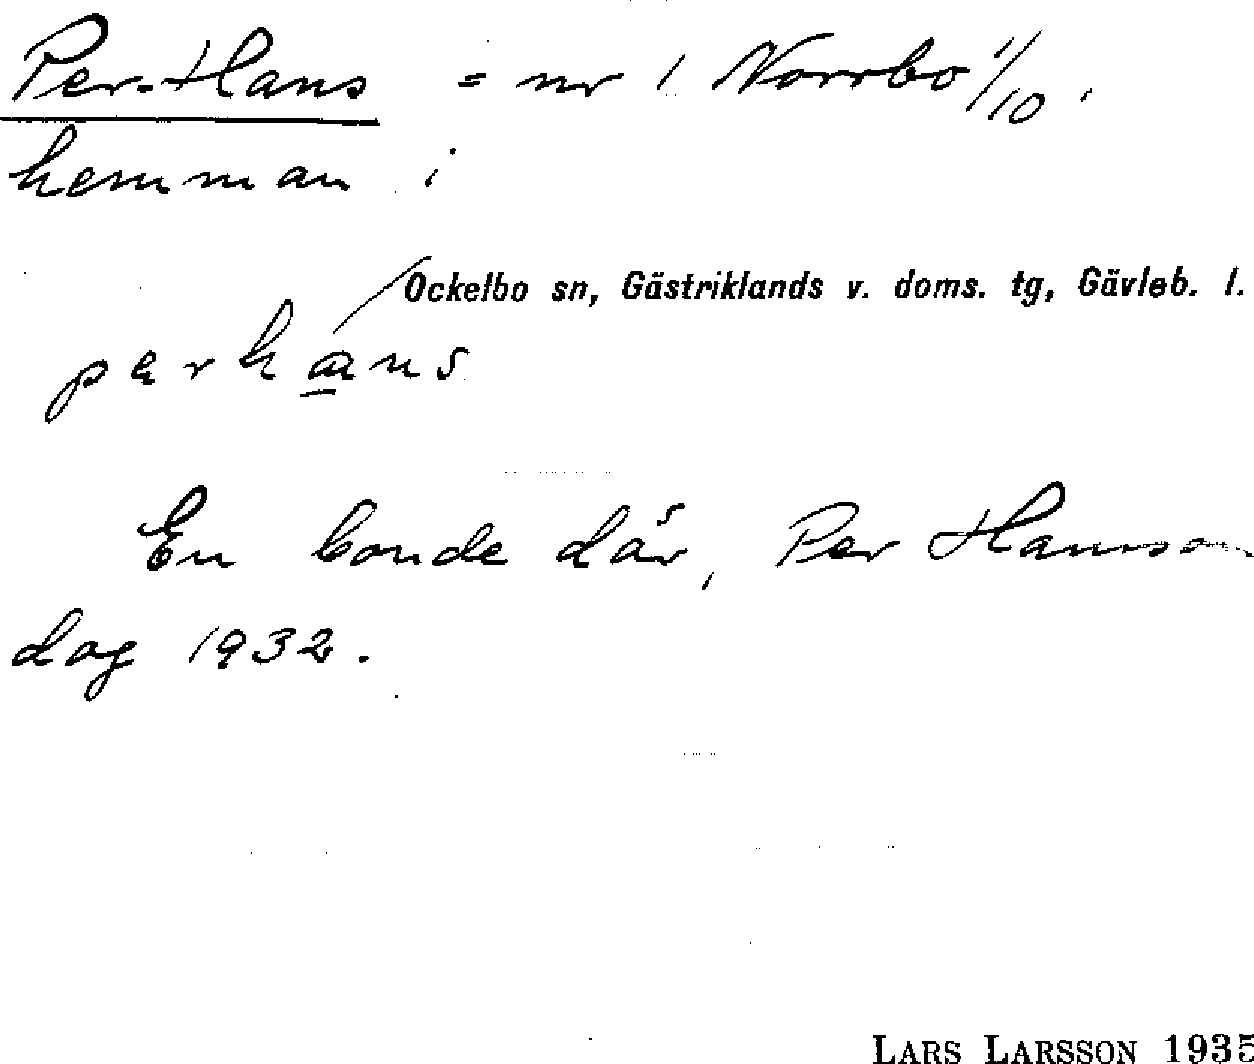 Per-Hans = nr 1 Norrbo 1/10.
hemman i
Ockelbo sn, Gästriklands v. doms. tg, Gävleb. l.
pærhans
En bonde där, Per Hanson
dog 1932.
LARS LARSSON 1935